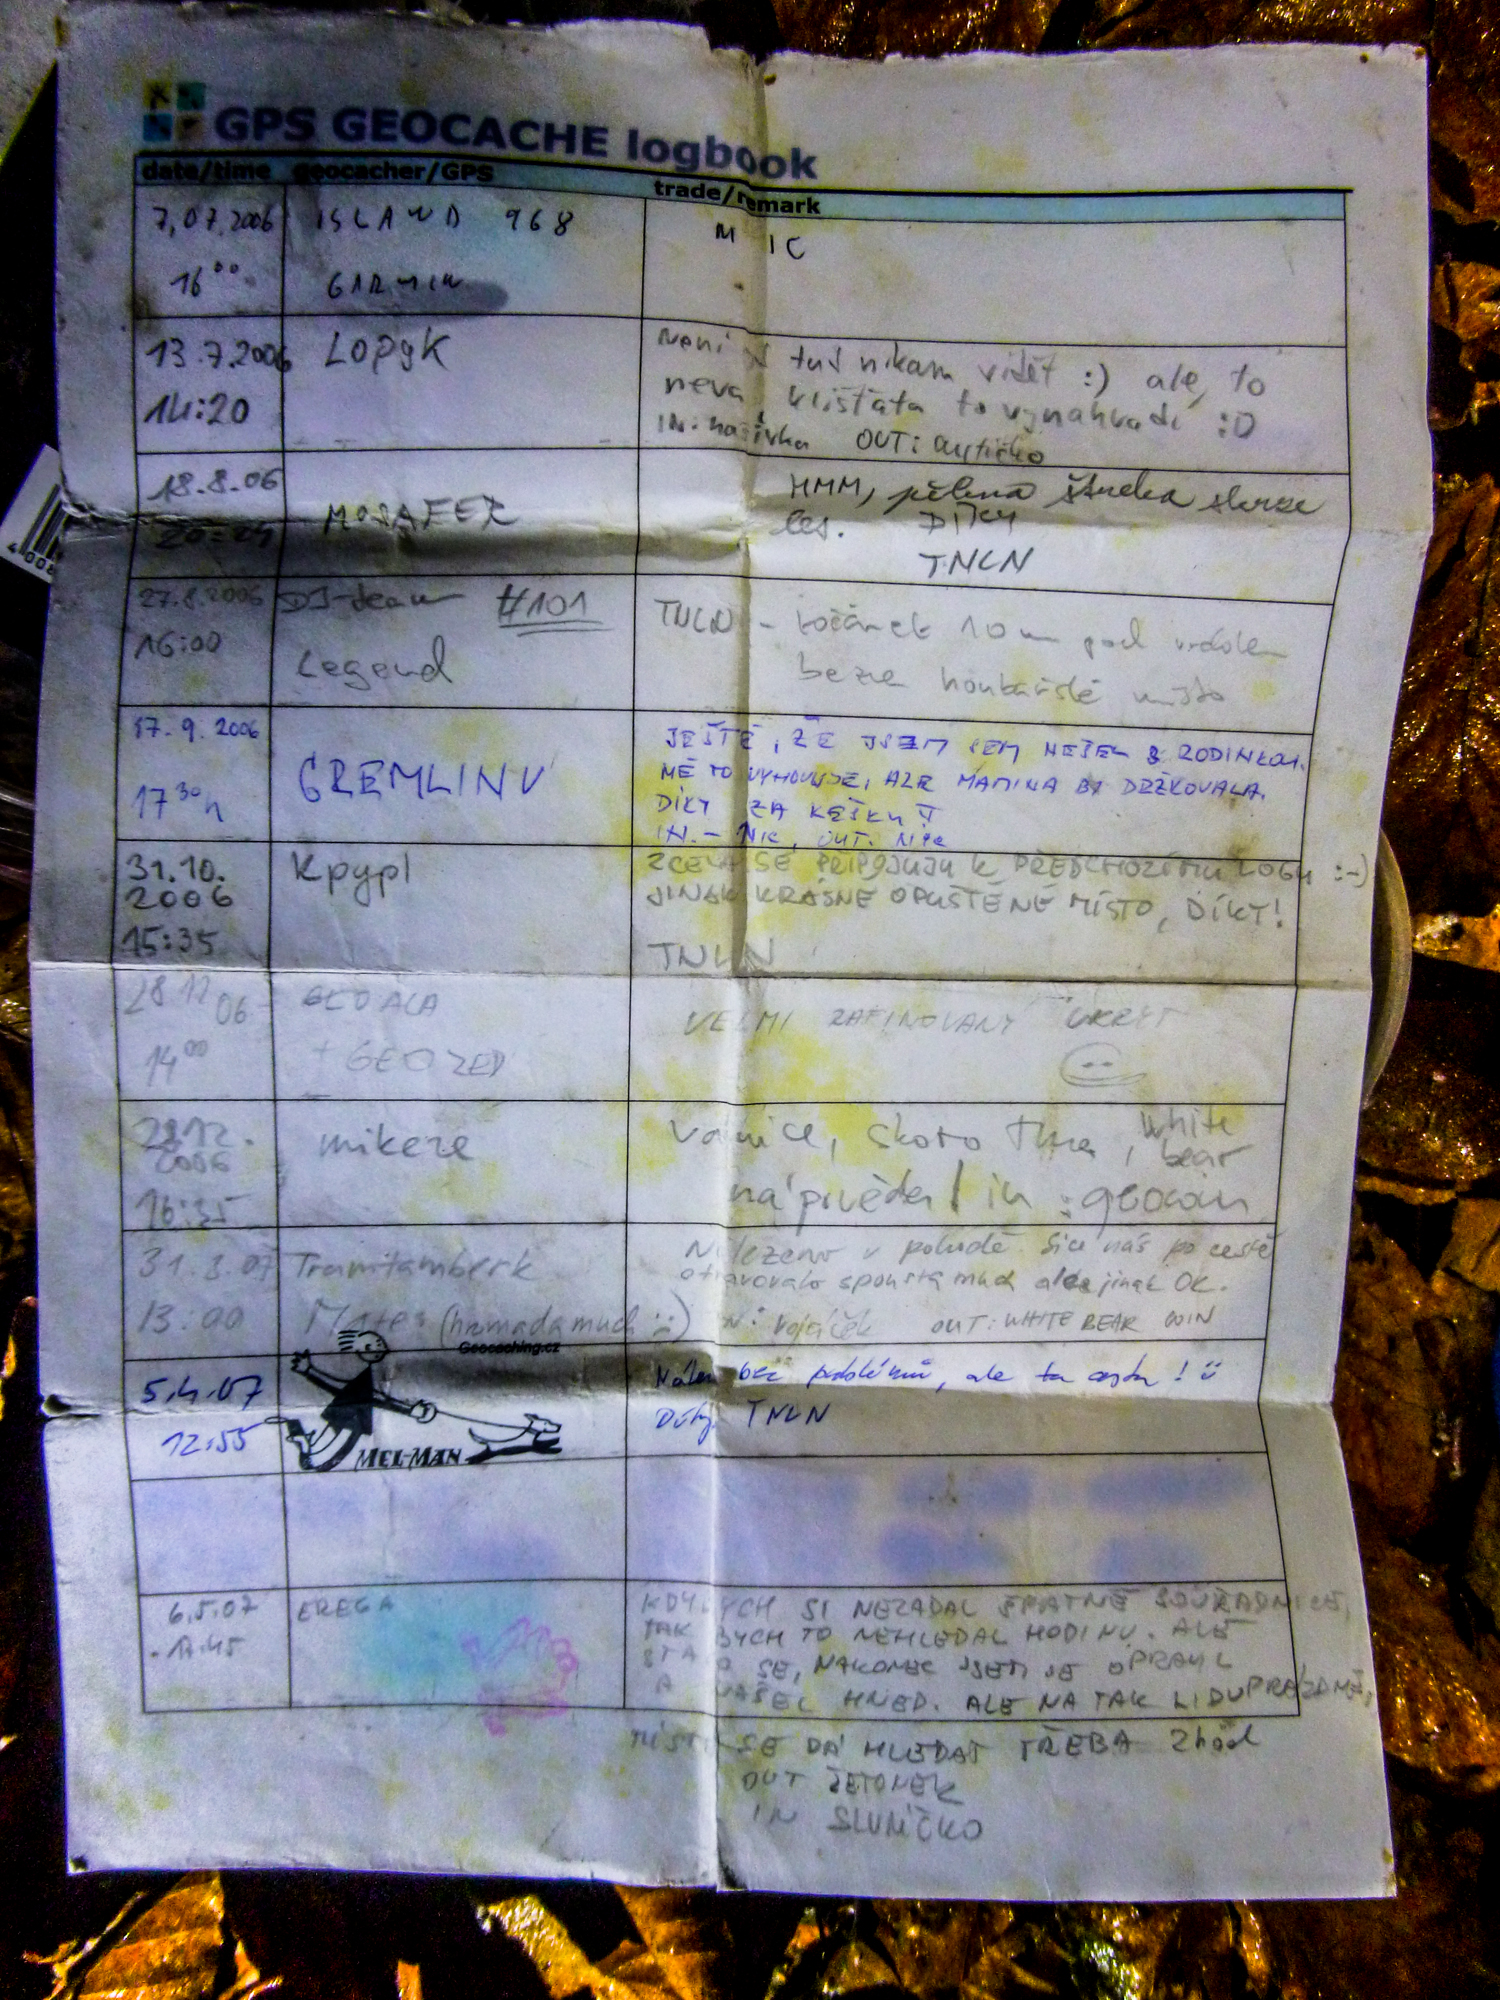 GPS GEOCACHE logbook
date/time geocacher/GPS trade/remark
7.07.2006 ISLAND 968
16⁰⁰ GARMIN
13.7.2006 LOPYK Není tu nikam vidět :) ale, to
14:20 neva klíšťata to vynahradí :D
IN: našivka OUT: autíčko
18.8.06 MOSAFER HMM, pěkná štreka skrze
les. DÍKY
TNLN
27.8.2006 DJ-team #101 TNLN - kočárek 10m pod vrcholem
16:00 Legend houbařské místo
17.9.2006 GREMLINU JEŠTĚ, ŽE JSEM SEM NEŠEL S RODINKOU.
17³⁰h MĚ TO VYHOVUJE, ALE MAMINA BY DRŽKOVALA.
DÍKY ZA KEŠKU!!
IN. - NIC, OUT. NIC
31.10. Kpypl ZCELA SE PŘIPOJUJU K PŘEDCHOZÍMU LOGU :-)
2006 JINAK KRÁSNÉ OPUŠTĚNÉ MÍSTO, DÍKY!
15:35 TNLN
28 12 06 GEOALA VELMI RAFINOVANÝ ÚKRYT
14⁰⁰ + GEOZED
2006 mikeze skoro tma, White bear
16:35 in: geocoin
31.3.07 Tramtamberk Nalezeno v pohodě. Sice nás po cestě
13:00 (hromada much :-)) otravovalo spousta much ale jinak OK.
IN: vojáček OUT: WHITE BEAR COIN
Geocaching.cz
5.4.07 bez problémů, ale ta cesta!
12:55 MEL-MAN Díky. TNLN
6.5.07 EREGA KDYBYCH SI NEZADAL ŠPATNĚ SOUŘADNICE,
TAK BYCH TO NEHLEDAL HODINU. ALE
STALO SE, NAKONEC JSEM SE OPRAVIL
A NAŠEL HNED. ALE NA TAK LIDUPRÁZDNÉM
MÍSTĚ SE DÁ HLEDAT TŘEBA 2hod
OUT ŽETONEK
IN SLUNÍČKO